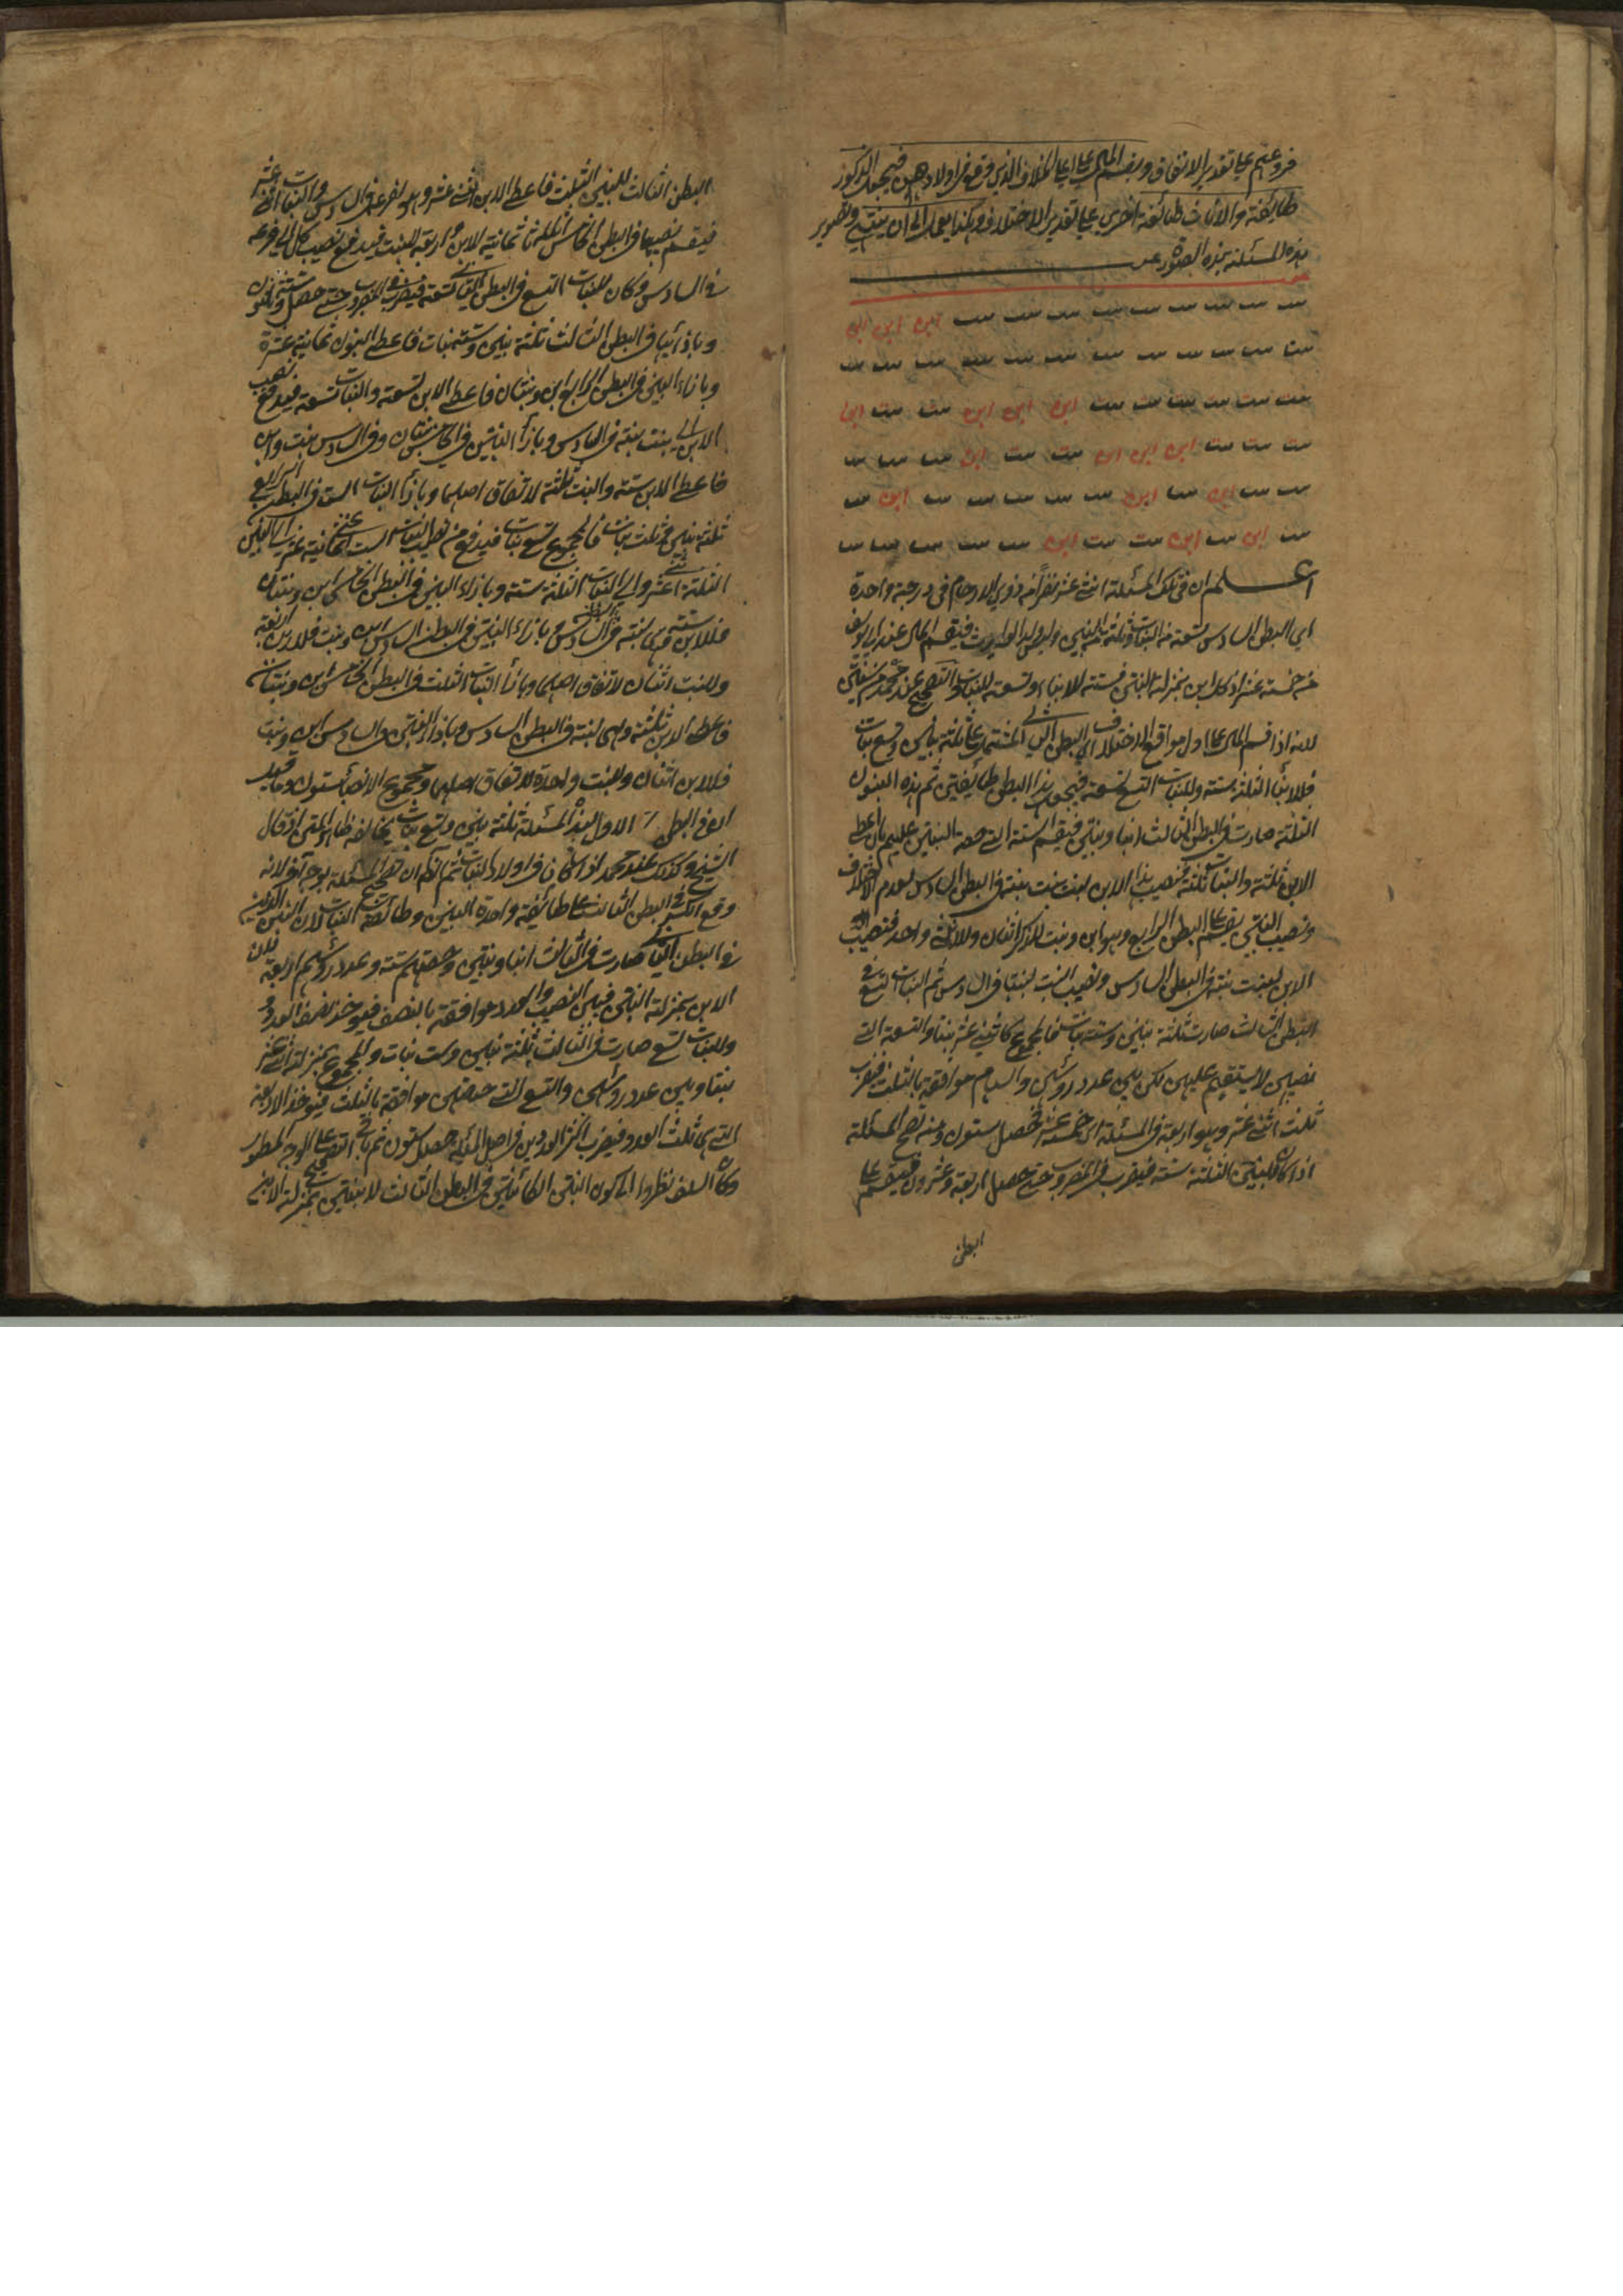 فروعهم على تقدير الاتفاق ويقسم المال على الخلاف الذي وقع في اولادهن فيجعل الذكور
طائفة والاناث طائفة اخرى على تقدير الاختلاف وهكذا يعمل الى ان ينتهي وتصوير
هذه المسئلة بهذه الصورة
بنت بنت بنت بنت بنت بنت بنت بنت بنت ابن ابن ابن
بنت بنت بنت بنت بنت بنت بنت بنت بنت بنت بنت بنت
بنت بنت بنت بنت بنت بنت ابن ابن ابن بنت بنت ابن
بنت بنت بنت ابن ابن ابن بنت بنت ابن بنت بنت بنت
بنت بنت ابن بنت ابن بنت بنت بنت بنت بنت ابن بنت
بنت ابن بنت ابن بنت بنت ابن بنت بنت بنت بنت بنت
اعلم ان في تلك المسئلة اثنى عشر نفرا من ذوي الارحام في درجة واحدة
اي البطن السادس تسعة من البنات وثلثة من البنين وليس ولد الوارث فيقسم المال عند ابي يوسف
من خمسة عشر اذ كل ابن بمنزلة البنتين فستة للابناء وتسعة للبنات والتصحيح عند محمد من ستين
لانه اذا قسم المال على اول مواقع الاختلاف اي البطن الثاني المشتمل على ثلثة بنين وتسع بنات
فللابناء الثلثة ستة وللبنات التسع تسعة فيجعل هذا البطن طائفتين ثم هذه البنون
الثلثة صارت في البطن الثالث ابنا وبنتين فيقسم الستة التي حصة البنين عليهم بان اعطي
الابن ثلثة والبنات ثلثة فنصيب هذا الابن لبنت بنت بنته في البطن السادس لعدم الاختلاف
ونصيب البنتين يقسم على البطن الرابع وهو ابن وبنت للذكر اثنان وللانثى واحد فنصيب
الابن لبنت بنته في البطن السادس ونصيب البنت لبنتها في السادس ثم البنات التسع في
البطن الثالث صارت ثلثة بنين وستة بنات فالمجموع كاثنى عشر بنتا والتسعة التي
نصيبهن لا يستقيم عليهن لكن بين عدد رؤسهن والسهام موافقة بالثلث فيضرب
ثلث اثنى عشر وهو اربعة في المسئلة اي خمسة عشر فحصل ستون ومنه تصح المسئلة
اذا كان للبنين الثلثة ستة فيضرب في المضروب حتى حصل اربعة وعشرون فيقسم على
البطن
البطن الثالث للبنين الثلث فاعطي الابن اثنى عشر وهو لفرعه في السادس والبنات اثنى عشر
فيقسم نصيبها في البطن ثمانية الابن واربعة للبنت فيدفع نصيب كل الى فرعه
في السادس وكان للبنات التسع في البطن الثاني تسعة فيضرب في المضروب حتى حصل ستة وثلثون
وبازائها في البطن الثالث ثلثة بنين وستة بنات فاعطي البنون ثمانية عشرة
وبازاء البنين في البطن الرابع ابن وبنتان فاعطي الابن تسعة والبنات تسعة فيدفع نصيب
الابن الى بنت بنته في السادس وبازاء البنتين في الخامس بنتان وفي السادس بنت وابن
فاعطي الابن ستة والبنت ثلثة لاتفاق اصلهما وبازاء البنات الست في البطن الرابع
ثلثة بنين وثلث بنات فالمجموع تسع بنات فيدفع من نصيب البنات الست ثمانية عشر الى البنين
الثلثة اثنى عشر والى البنات الثلثة ستة وبازاء البنين في البطن الخامس ابن وبنتان
فللابن ستة فهي لبنته في السادس وبازاء البنتين في البطن السادس ابن وبنت فللابن اربعة
وللبنت اثنان لاتفاق اصلهما وبازاء البنات الثلث في البطن الخامس ابن وبنتان
فاعطي الابن ثلثة وهي لبنته في البطن السادس وبازاء البنتين في السادس ابن وبنت
فللابن اثنان وللبنت واحدة لاتفاق اصلهما ومجموع الانصباء ستون
في البطن الاول لهذا المسئلة ثلثة بنين وتسع بنات يخالف ظاهر المتن اذ قال
الشيخ وكذلك عند محمد اذا كان في اولاد البنات ثم اعلم ان تصحيح المسئلة بوجه آخر لانه
وقع الكسر في البطن الثالث على طائفة واحدة البنين وطائفة البنات لان البنين الذين
في البطن الثاني صارت في الثالث ابنا وبنتين وحصتهم ستة وعدد رؤسهم اربعة لان
الابن بمنزلة البنتين فبين النصيب والعدد موافقة بالنصف فيؤخذ نصف العدد
وللبنات تسع صارت في الثالث ثلثة بنين وست بنات والمجموع بمنزلة اثنى عشر
بنتا وبين عدد رؤسهن والتسع التي حصتهن موافقة بالثلث فيؤخذ الاربعة
التي هي ثلث العدد فيضرب اكثر العددين في اصل المسئلة حصل ستون ثم التصحيح على الوجه المسطور
وكان السلف نظروا الى كون البنتين الكائنتين في البطن الثالث لابنتين بمنزلة الابن